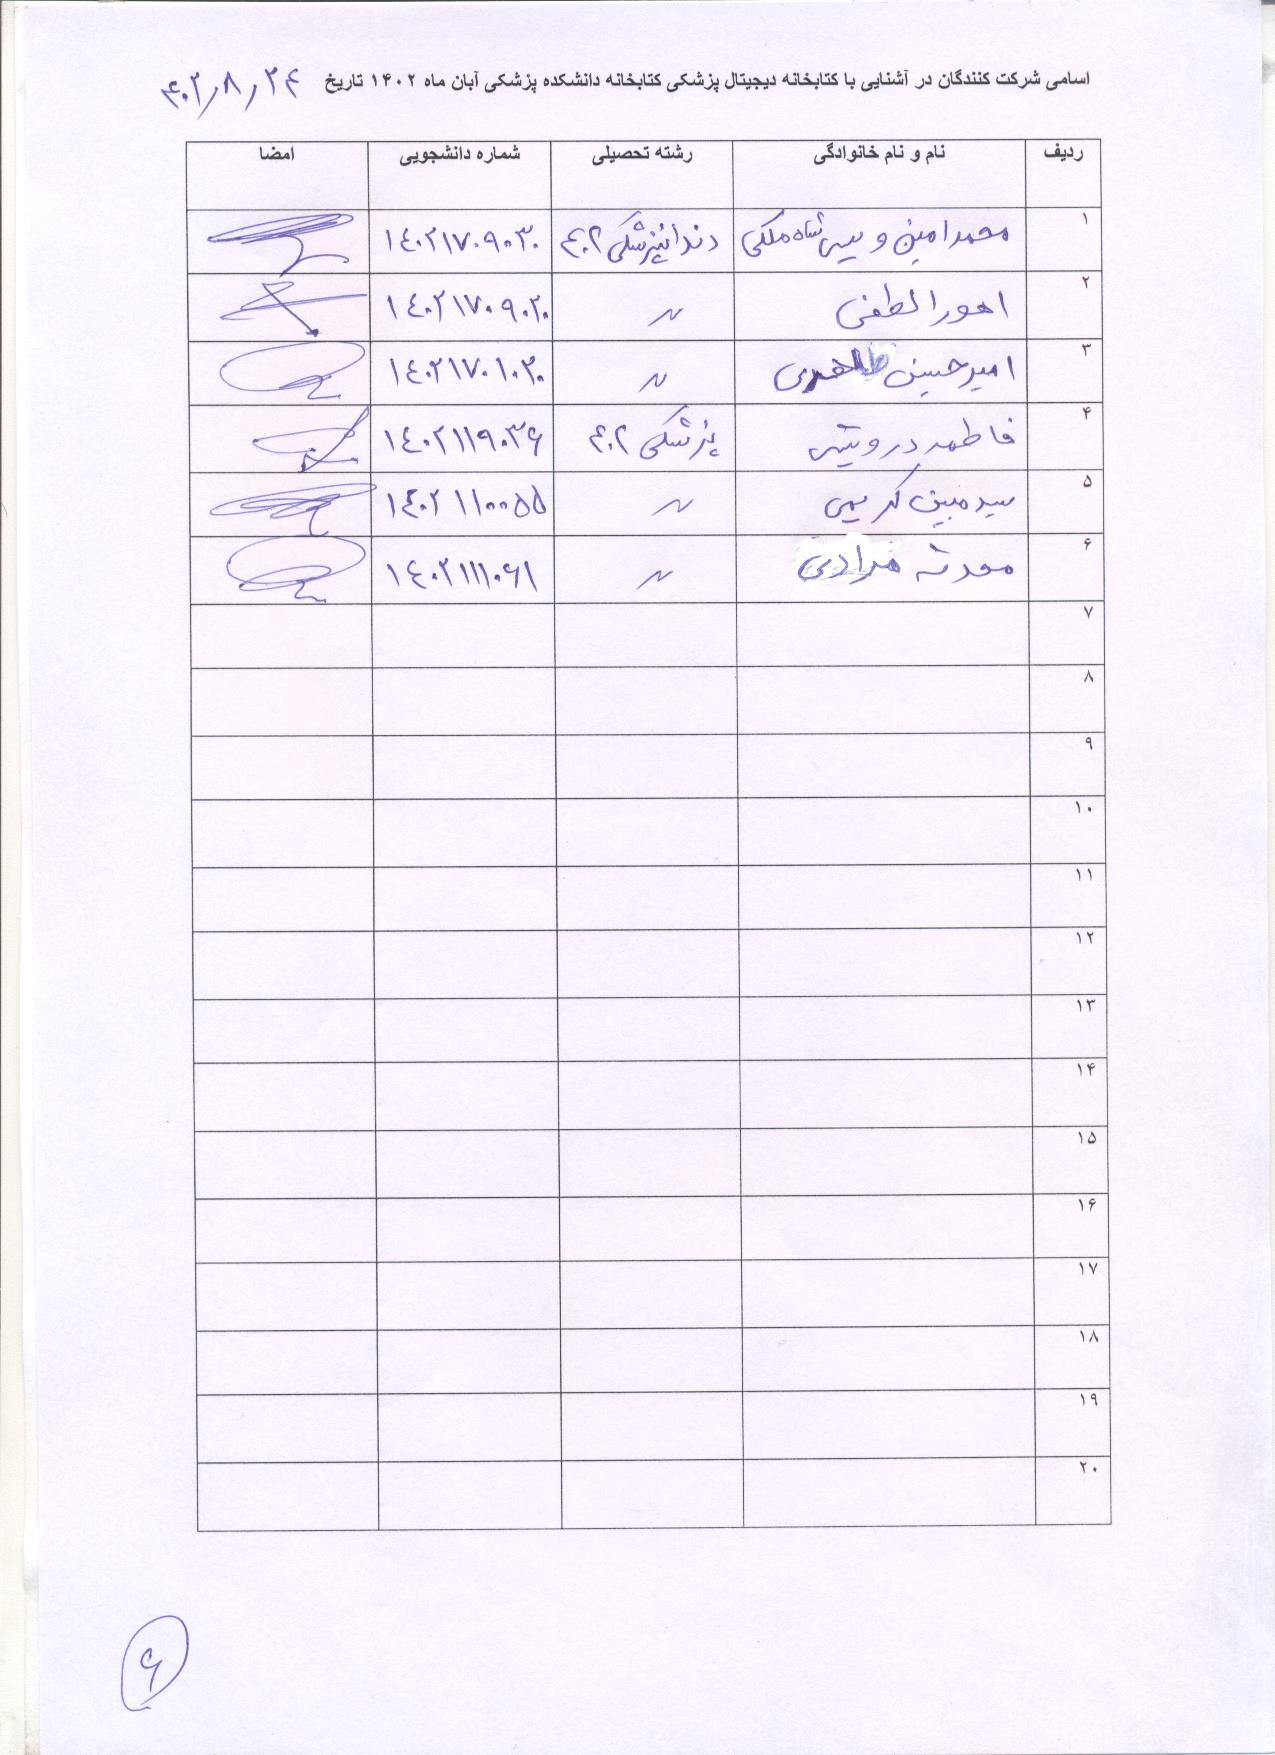 اسامی شرکت کنندگان در آشنایی با کتابخانه دیجیتال پزشکی کتابخانه دانشکده پزشکی آبان ماه ۱۴۰۲ تاریخ ۴۰۲/۸/۲۴
ردیف نام و نام خانوادگی رشته تحصیلی شماره دانشجویی امضا
۱ محمدامین ویسی شاه ملکی دندانپزشکی ۴۰۲ ۱۴۰۲۱۷۰۹۰۳۰
۲ اهورا لطفی 〃 ۱۴۰۲۱۷۰۹۰۲۰
۳ امیرحسین طاهری 〃 ۱۴۰۲۱۷۰۱۰۳۰
۴ فاطمه درویشی پزشکی ۴۰۲ ۱۴۰۲۱۱۹۰۳۶
۵ سیدمبین کریمی 〃 ۱۴۰۲۱۱۰۰۵۵
۶ محدثه مرادی 〃 ۱۴۰۲۱۱۱۰۶۱
۷
۸
۹
۱۰
۱۱
۱۲
۱۳
۱۴
۱۵
۱۶
۱۷
۱۸
۱۹
۲۰
۶